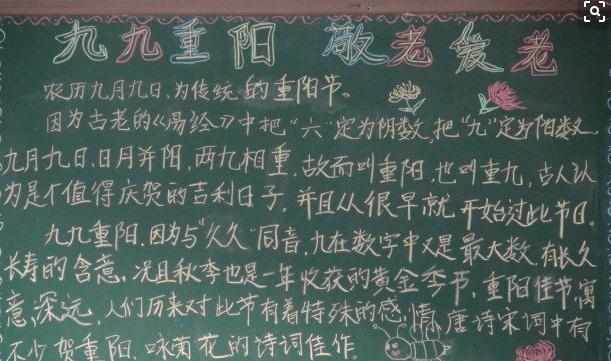 九九重阳 敬老爱老
农历九月九日,为传统的重阳节。
因为古老的《易经》中把“六”定为阴数,把“九”定为阳数,
九月九日,日月并阳,两九相重,故而叫重阳,也叫重九,古人认
为是个值得庆贺的吉利日子,并且从很早就开始过此节日。
九九重阳,因为与“久久”同音,九在数字中又是最大数,有长久
长寿的含意,况且秋季也是一年收获的黄金季节,重阳佳节,寓
意深远,人们历来对此节有着特殊的感情,唐诗宋词中有
不少贺重阳,咏菊花的诗词佳作。